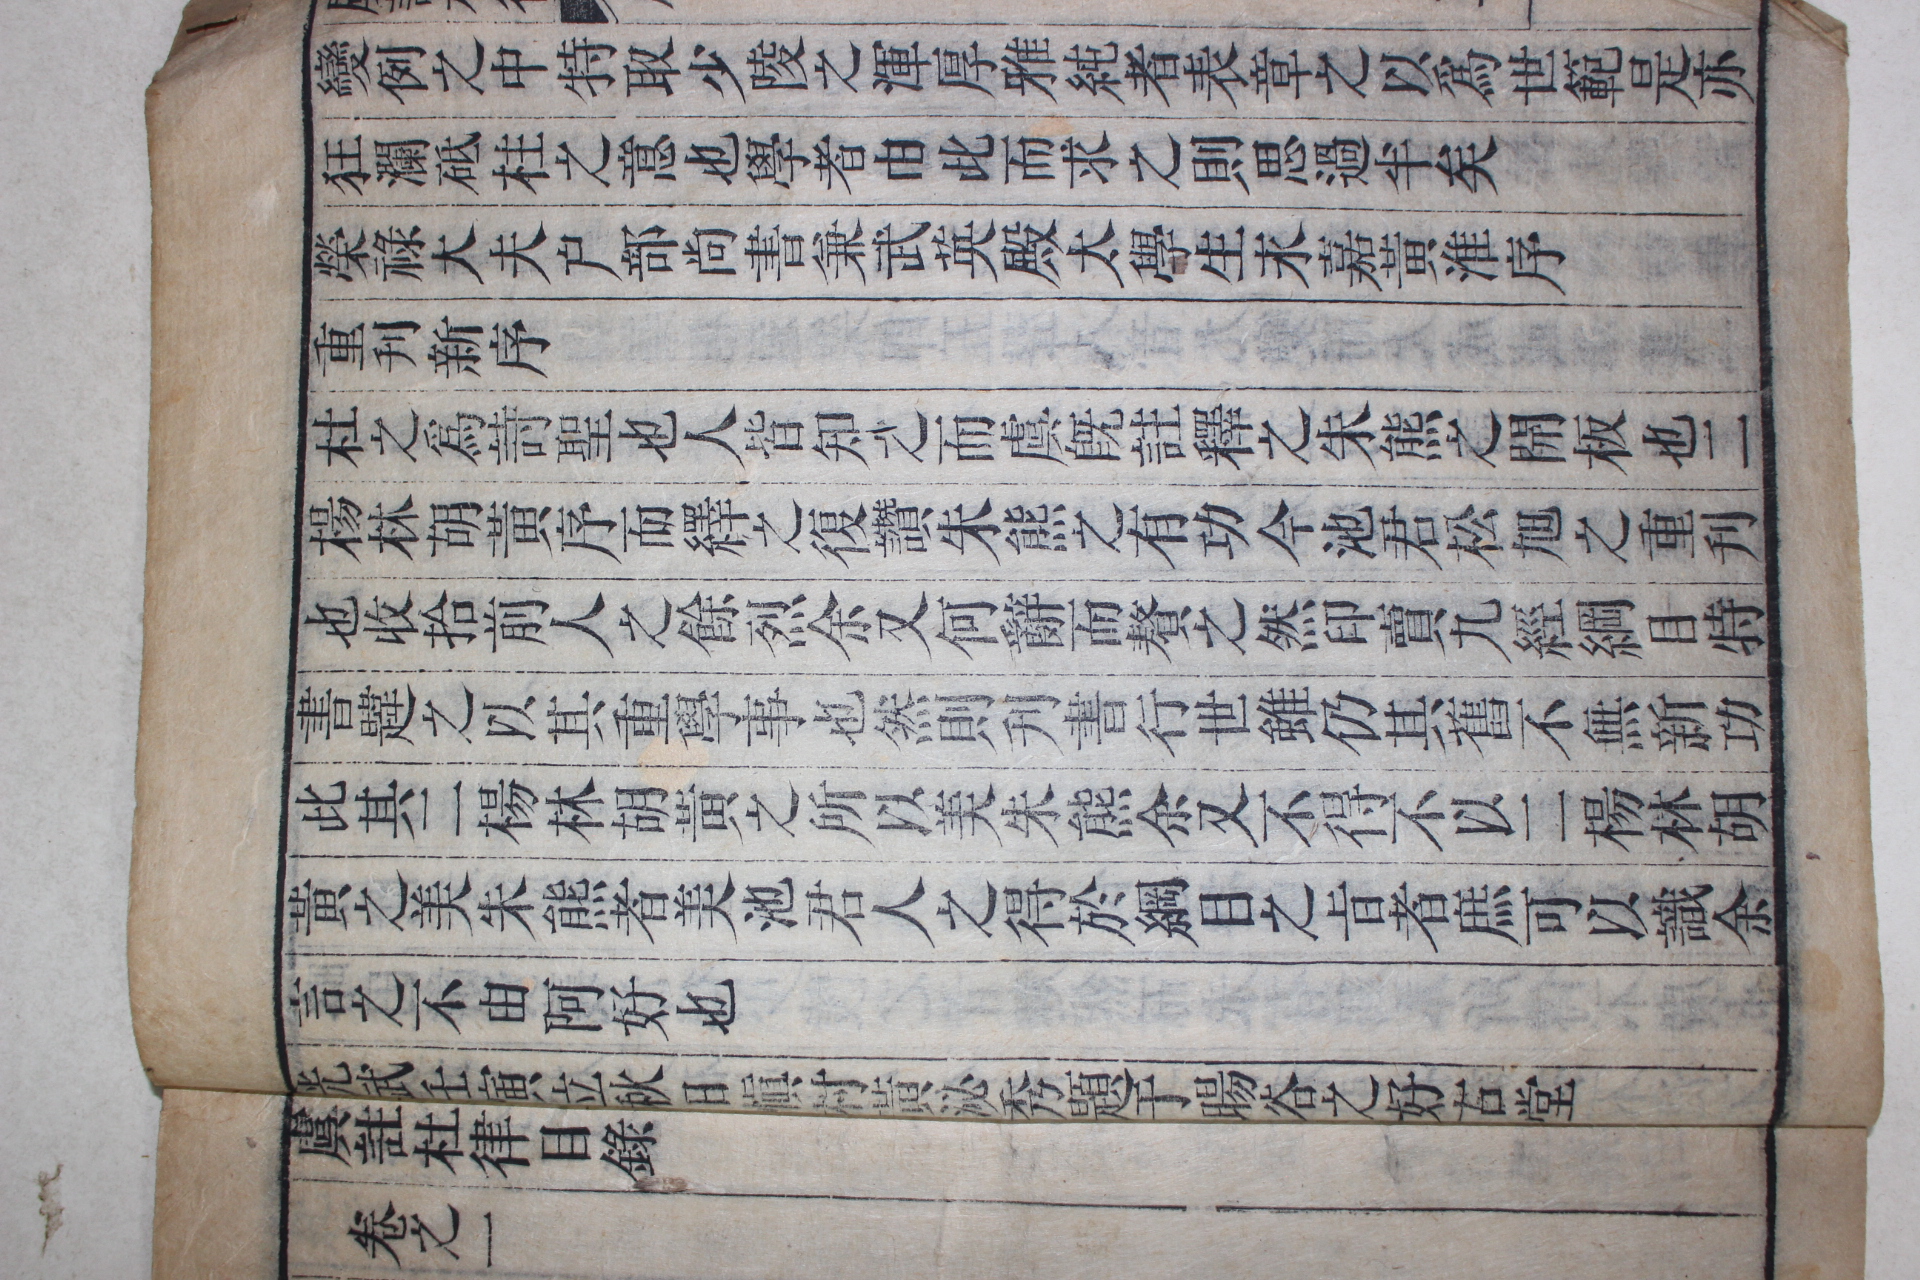 變例之中特取少陵之渾厚雅純者表章之以爲世範是亦
狂瀾砥柱之意也學者由此而求之則思過半矣
榮祿大夫户部尚書兼武英殿大學生永嘉黃淮序
重刊新序
杜之爲詩聖也人皆知之而虞旣註釋之朱熊之開板也二
楊林胡黃序而繹之復讚朱熊之有功今池君松旭之重刊
也收拾前人之餘烈余又何辭而贅之然印賣九經綱目特
書題之以其重學事也然則刋書行世雖仍其舊不無新功
此其二楊林胡黃之所以美朱熊余又不得不以二楊林胡
黃之美朱熊者美池君人之得於綱目之旨者庶可以識余
言之不由阿好也
光武壬寅立秋日 村黃泌秀題于暘谷之好古堂
虞註杜律目錄
卷之一